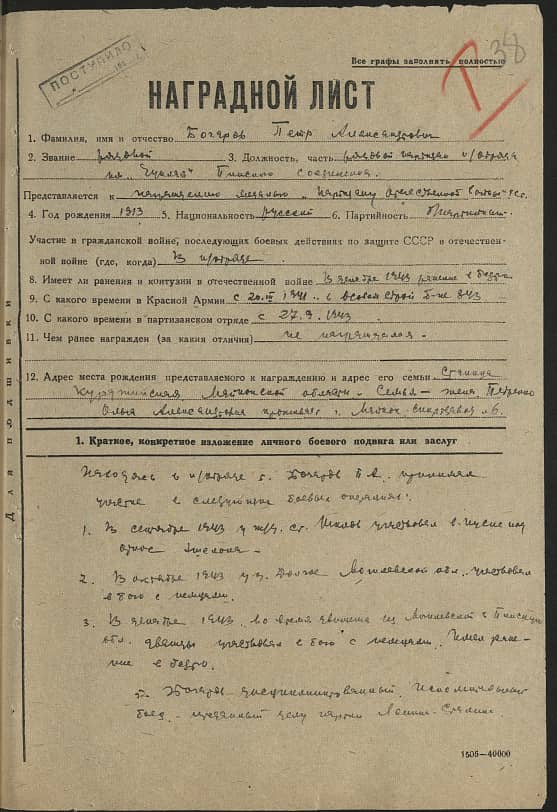 ПОСТУПИЛО
38
Все графы заполнять полностью
НАГРАДНОЙ ЛИСТ
1. Фамилия, имя и отчество Бочаров Петр Александрович
2. Звание рядовой 3. Должность, часть рядовой партизан п/отряда
Пинского соединения
Представляется к награждению медалью „Партизану Отечественной войны"
4. Год рождения 1913 5. Национальность русский 6. Партийность
Участие в гражданской войне, последующих боевых действиях по защите СССР и отечествен-
ной войне (где, когда) В п/отряде
8. Имеет ли ранения и контузии в отечественной войне В декабре 1943 ранение в бедро
9. С какого времени в Красной Армии с 1941
10. С какого времени в партизанском отряде с 27.9.1943
11. Чем ранее награжден (за какия отличия) не награждался.
12. Адрес места рождения представляемого к награждению и адрес его семьи Станица
области. Семья – жена
Ольга Александровна проживает г. Майкоп
Для подшивки
1. Краткое, конкретное изложение личного боевого подвига или заслуг
Находясь в п/отряде т. Бочаров П.А. принимал
участие в следующих боевых операциях:
1. В сентябре 1943 у ж/д. ст. участвовал в
эшелона –
2. В октябре 1943 у д. Долгое Могилевской обл. участвовал
в бою с немцами.
3. В декабре 1943 во время движения из Могилевской в Пинскую
обл. дважды участвовал в бою с немцами. Имел ране-
ние в бедро.
т. Бочаров дисциплинированный исполнительный
боец. преданный делу партии Ленина-Сталина.
1505—40000